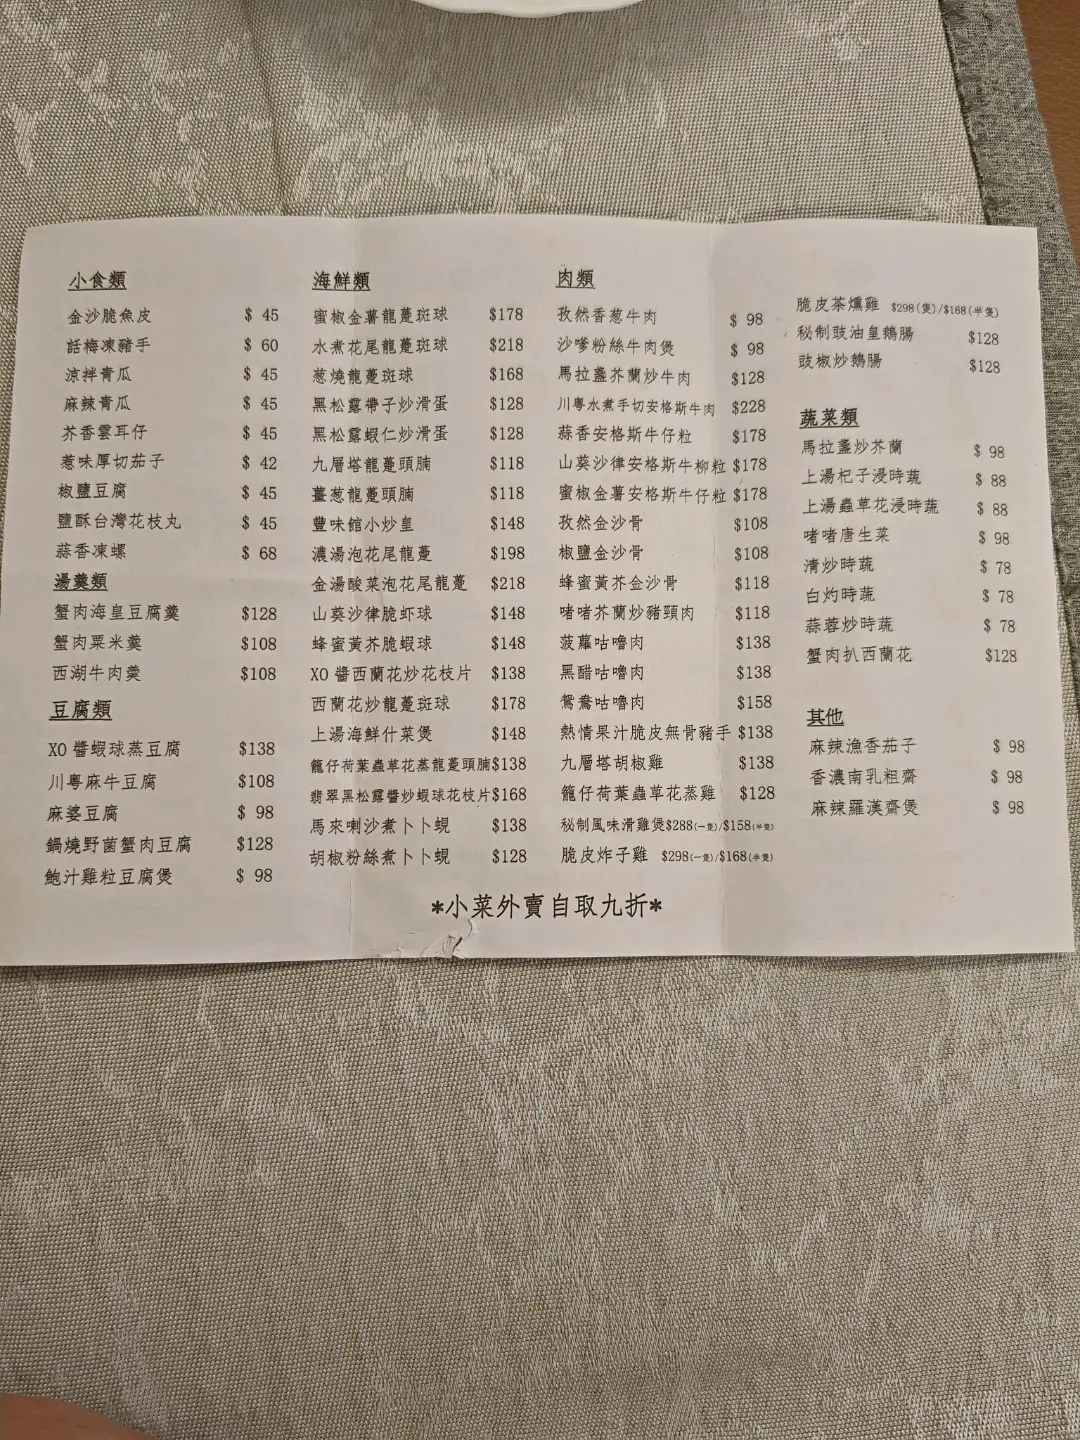 小食類
金沙脆魚皮 $ 45
話梅凍豬手 $ 60
涼拌青瓜 $ 45
麻辣青瓜 $ 45
芥香雲耳仔 $ 45
惹味厚切茄子 $ 42
椒鹽豆腐 $ 45
鹽酥台灣花枝丸 $ 45
蒜香凍螺 $ 68
湯羹類
蟹肉海皇豆腐羹 $128
蟹肉粟米羹 $108
西湖牛肉羹 $108
豆腐類
XO 醬蝦球蒸豆腐 $138
川粵麻牛豆腐 $108
麻婆豆腐 $ 98
鍋燒野菌蟹肉豆腐 $128
鮑汁雞粒豆腐煲 $ 98
海鮮類
蜜椒金薯龍躉斑球 $178
水煮花尾龍躉斑球 $218
葱燒龍躉斑球 $168
黑松露帶子炒滑蛋 $128
黑松露蝦仁炒滑蛋 $128
九層塔龍躉頭腩 $118
薑葱龍躉頭腩 $118
豐味館小炒皇 $148
濃湯泡花尾龍躉 $198
金湯酸菜泡花尾龍躉 $218
山葵沙律脆虾球 $148
蜂蜜黃芥脆蝦球 $148
XO 醬西蘭花炒花枝片 $138
西蘭花炒龍躉斑球 $178
上湯海鮮什菜煲 $148
籠仔荷葉蟲草花蒸龍躉頭腩$138
翡翠黑松露醬炒蝦球花枝片$168
馬來喇沙煮卜卜蜆 $138
胡椒粉絲煮卜卜蜆 $128
肉類
孜然香葱牛肉 $ 98
沙嗲粉絲牛肉煲 $ 98
馬拉盞芥蘭炒牛肉 $128
川粵水煮手切安格斯牛肉 $228
蒜香安格斯牛仔粒 $178
山葵沙律安格斯牛柳粒 $178
蜜椒金薯安格斯牛仔粒 $178
孜然金沙骨 $108
椒鹽金沙骨 $108
蜂蜜黃芥金沙骨 $118
啫啫芥蘭炒豬頸肉 $118
菠蘿咕嚕肉 $138
黑醋咕嚕肉 $138
鴛鴦咕嚕肉 $158
熱情果汁脆皮無骨豬手 $138
九層塔胡椒雞 $138
籠仔荷葉蟲草花蒸雞 $128
秘制風味滑雞煲$288(一隻)/$158(半隻)
脆皮炸子雞 $298(一隻)/$168(半隻)
脆皮茶燻雞 $298(隻)/$168(半隻)
秘制豉油皇鵝腸 $128
豉椒炒鵝腸 $128
蔬菜類
馬拉盞炒芥蘭 $ 98
上湯杞子浸時蔬 $ 88
上湯蟲草花浸時蔬 $ 88
啫啫唐生菜 $ 98
清炒時蔬 $ 78
白灼時蔬 $ 78
蒜蓉炒時蔬 $ 78
蟹肉扒西蘭花 $128
其他
麻辣漁香茄子 $ 98
香濃南乳粗齋 $ 98
麻辣羅漢齋煲 $ 98
*小菜外賣自取九折*